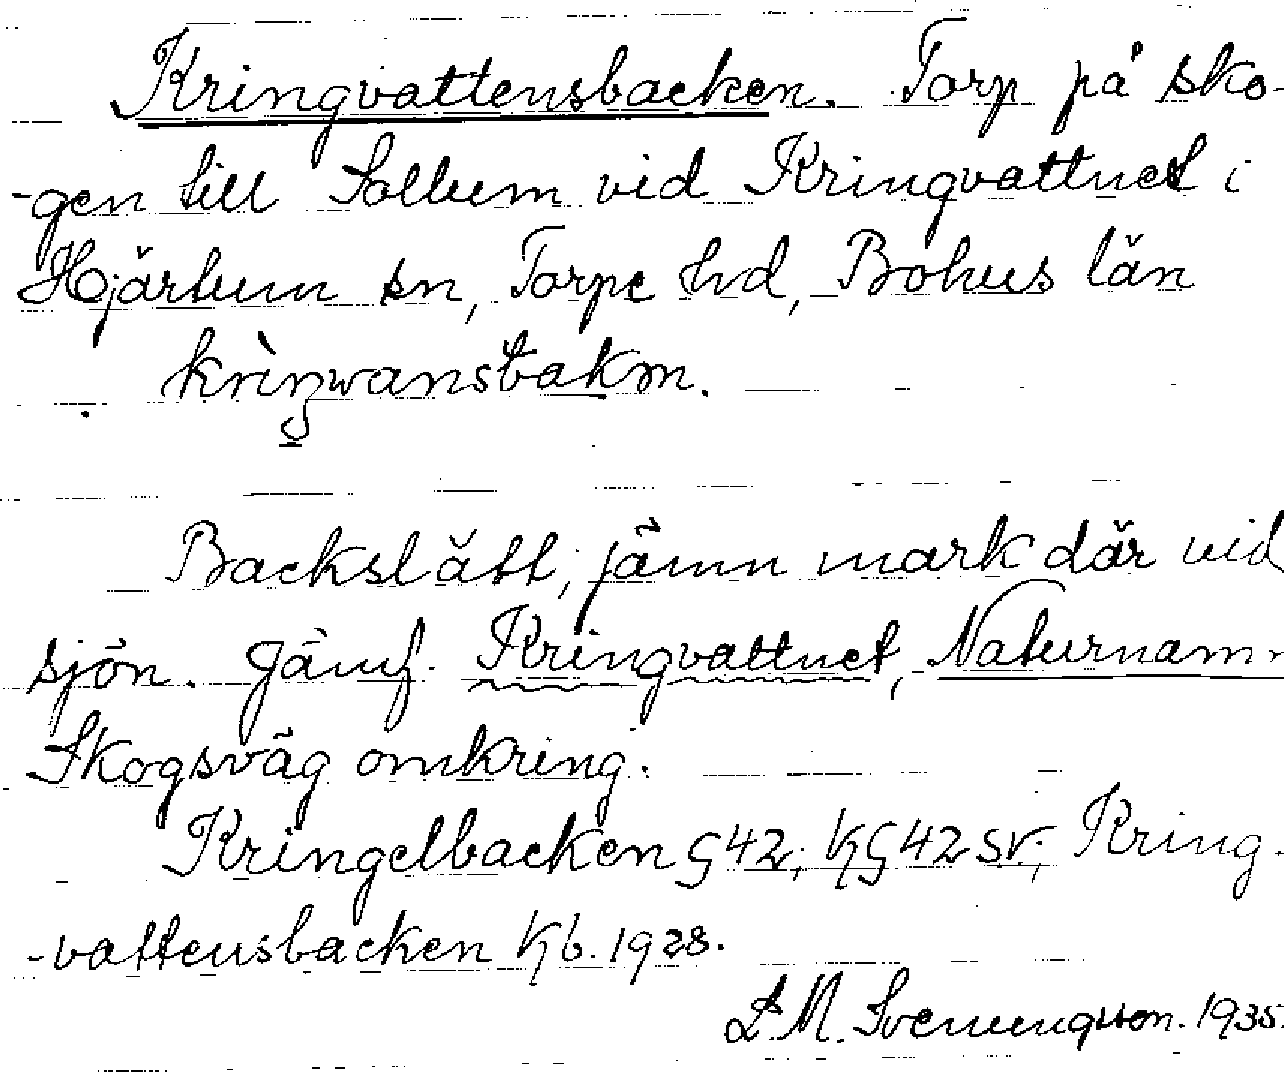 Kringvattensbacken. Torp på sko-
-gen till Sollum vid Kringvattnet i
Hjärtum sn, Torpe hd, Bohus län
Backslätt, jämn mark där vid
sjön. Jämf. Kringvattnet, Naturnamn
Skogsväg omkring.
Kringelbacken G 42; KG 42 sv; Kring-
-vattensbacken Kb. 1928.
L. M. Svenungsson. 1935.